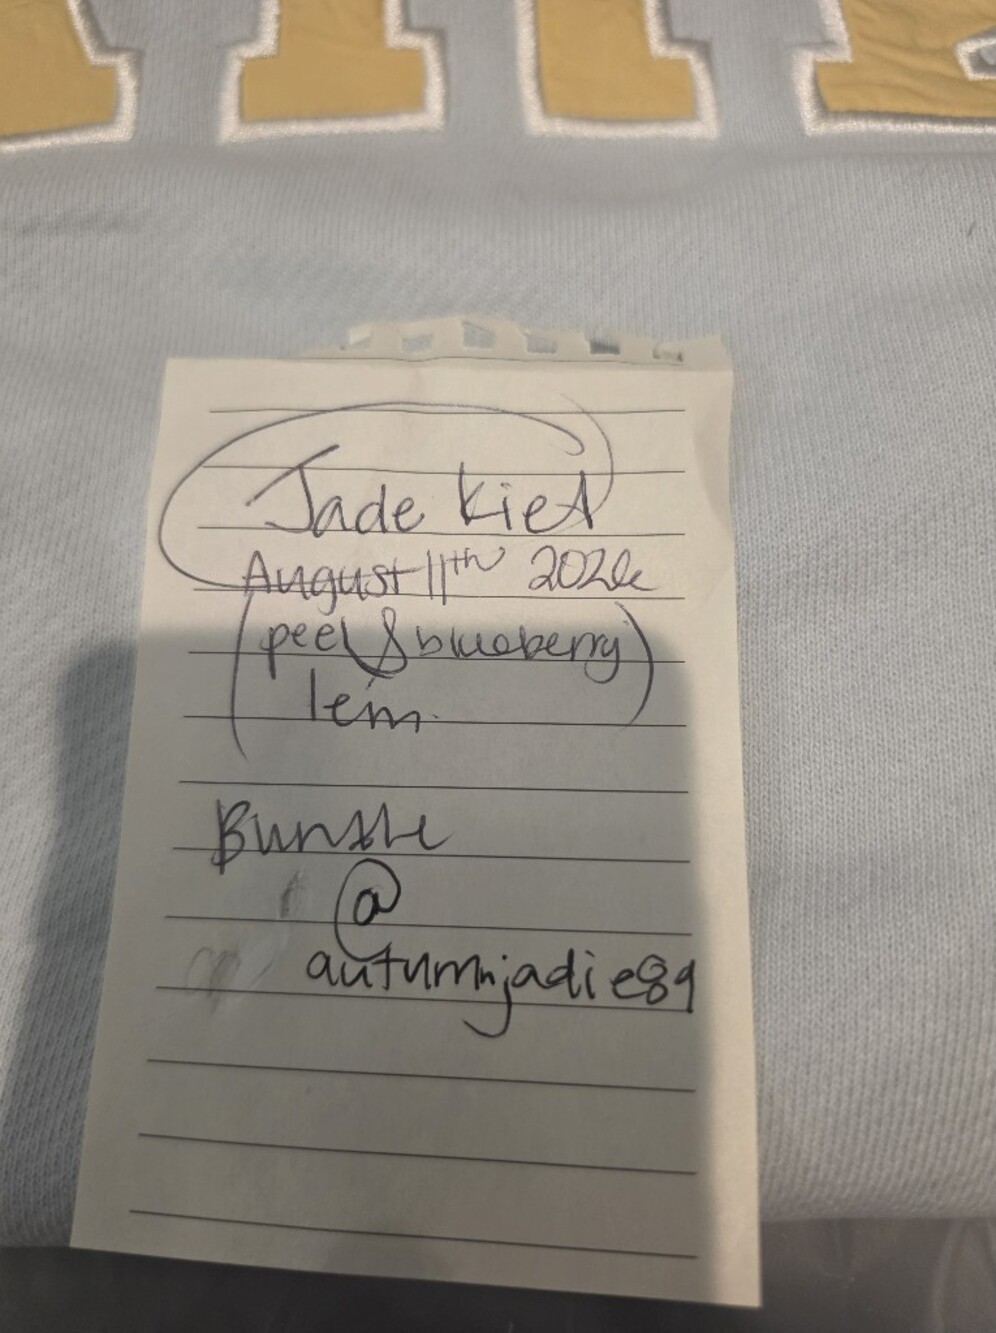 Jade Kiet
August 11th
(peel & blueberry)
lem
Bundle
@
autumnjadie89